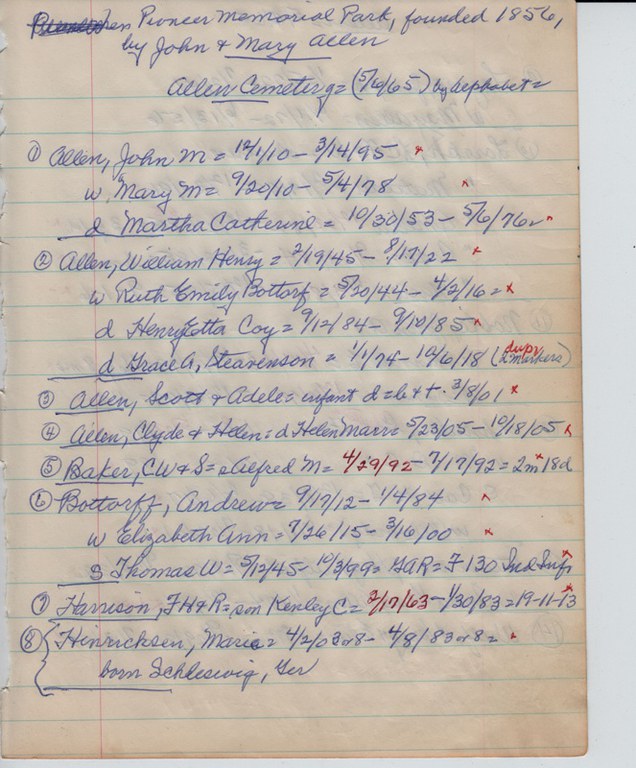 Pioneer Memorial Park, founded 1856,
by John & Mary Allen
Allen Cemetery = (5/6/65) by Alphabet =
① Allen, John M = 12/1/10 - 3/14/95 *
w Mary M = 9/20/10 - 5/4/78 *
d Martha Catherine = 10/30/53 - 5/6/76 = *
② Allen, William Henry = 2/19/45 - 8/17/22 *
w Ruth Emily Bottorf = 5/20/44 - 4/2/16 = *
d Henryetta Coy = 9/12/84 - 9/10/85 *
d Grace A, Steavenson = 1/1/74 - 10/6/18 (dupr 2 markers)
③ Allen, Scott & Adele = infant d = b & d. 3/8/01 *
④ Allen, Clyde & Helen = d Helen = 5/23/05 - 10/18/05 *
⑤ Baker, CW & S = s Alfred M = 4/29/92 - 7/17/92 = 2m 18d *
⑥ Bottorff, Andrew = 9/17/12 - 1/4/84 *
w Elizabeth Ann = 7/26/15 - 3/16/00 *
s Thomas W = 5/12/45 - 10/3/99 = GAR = F 130 Ind Inf *
⑦ Harrison, FH & R = son Kenley C = 2/17/63 - 1/30/83 = 19-11-13 *
⑧ Hinrichsen, Marie = 4/2/03 or 8 - 4/8/83 or 8 = *
born Schleswig, Ger